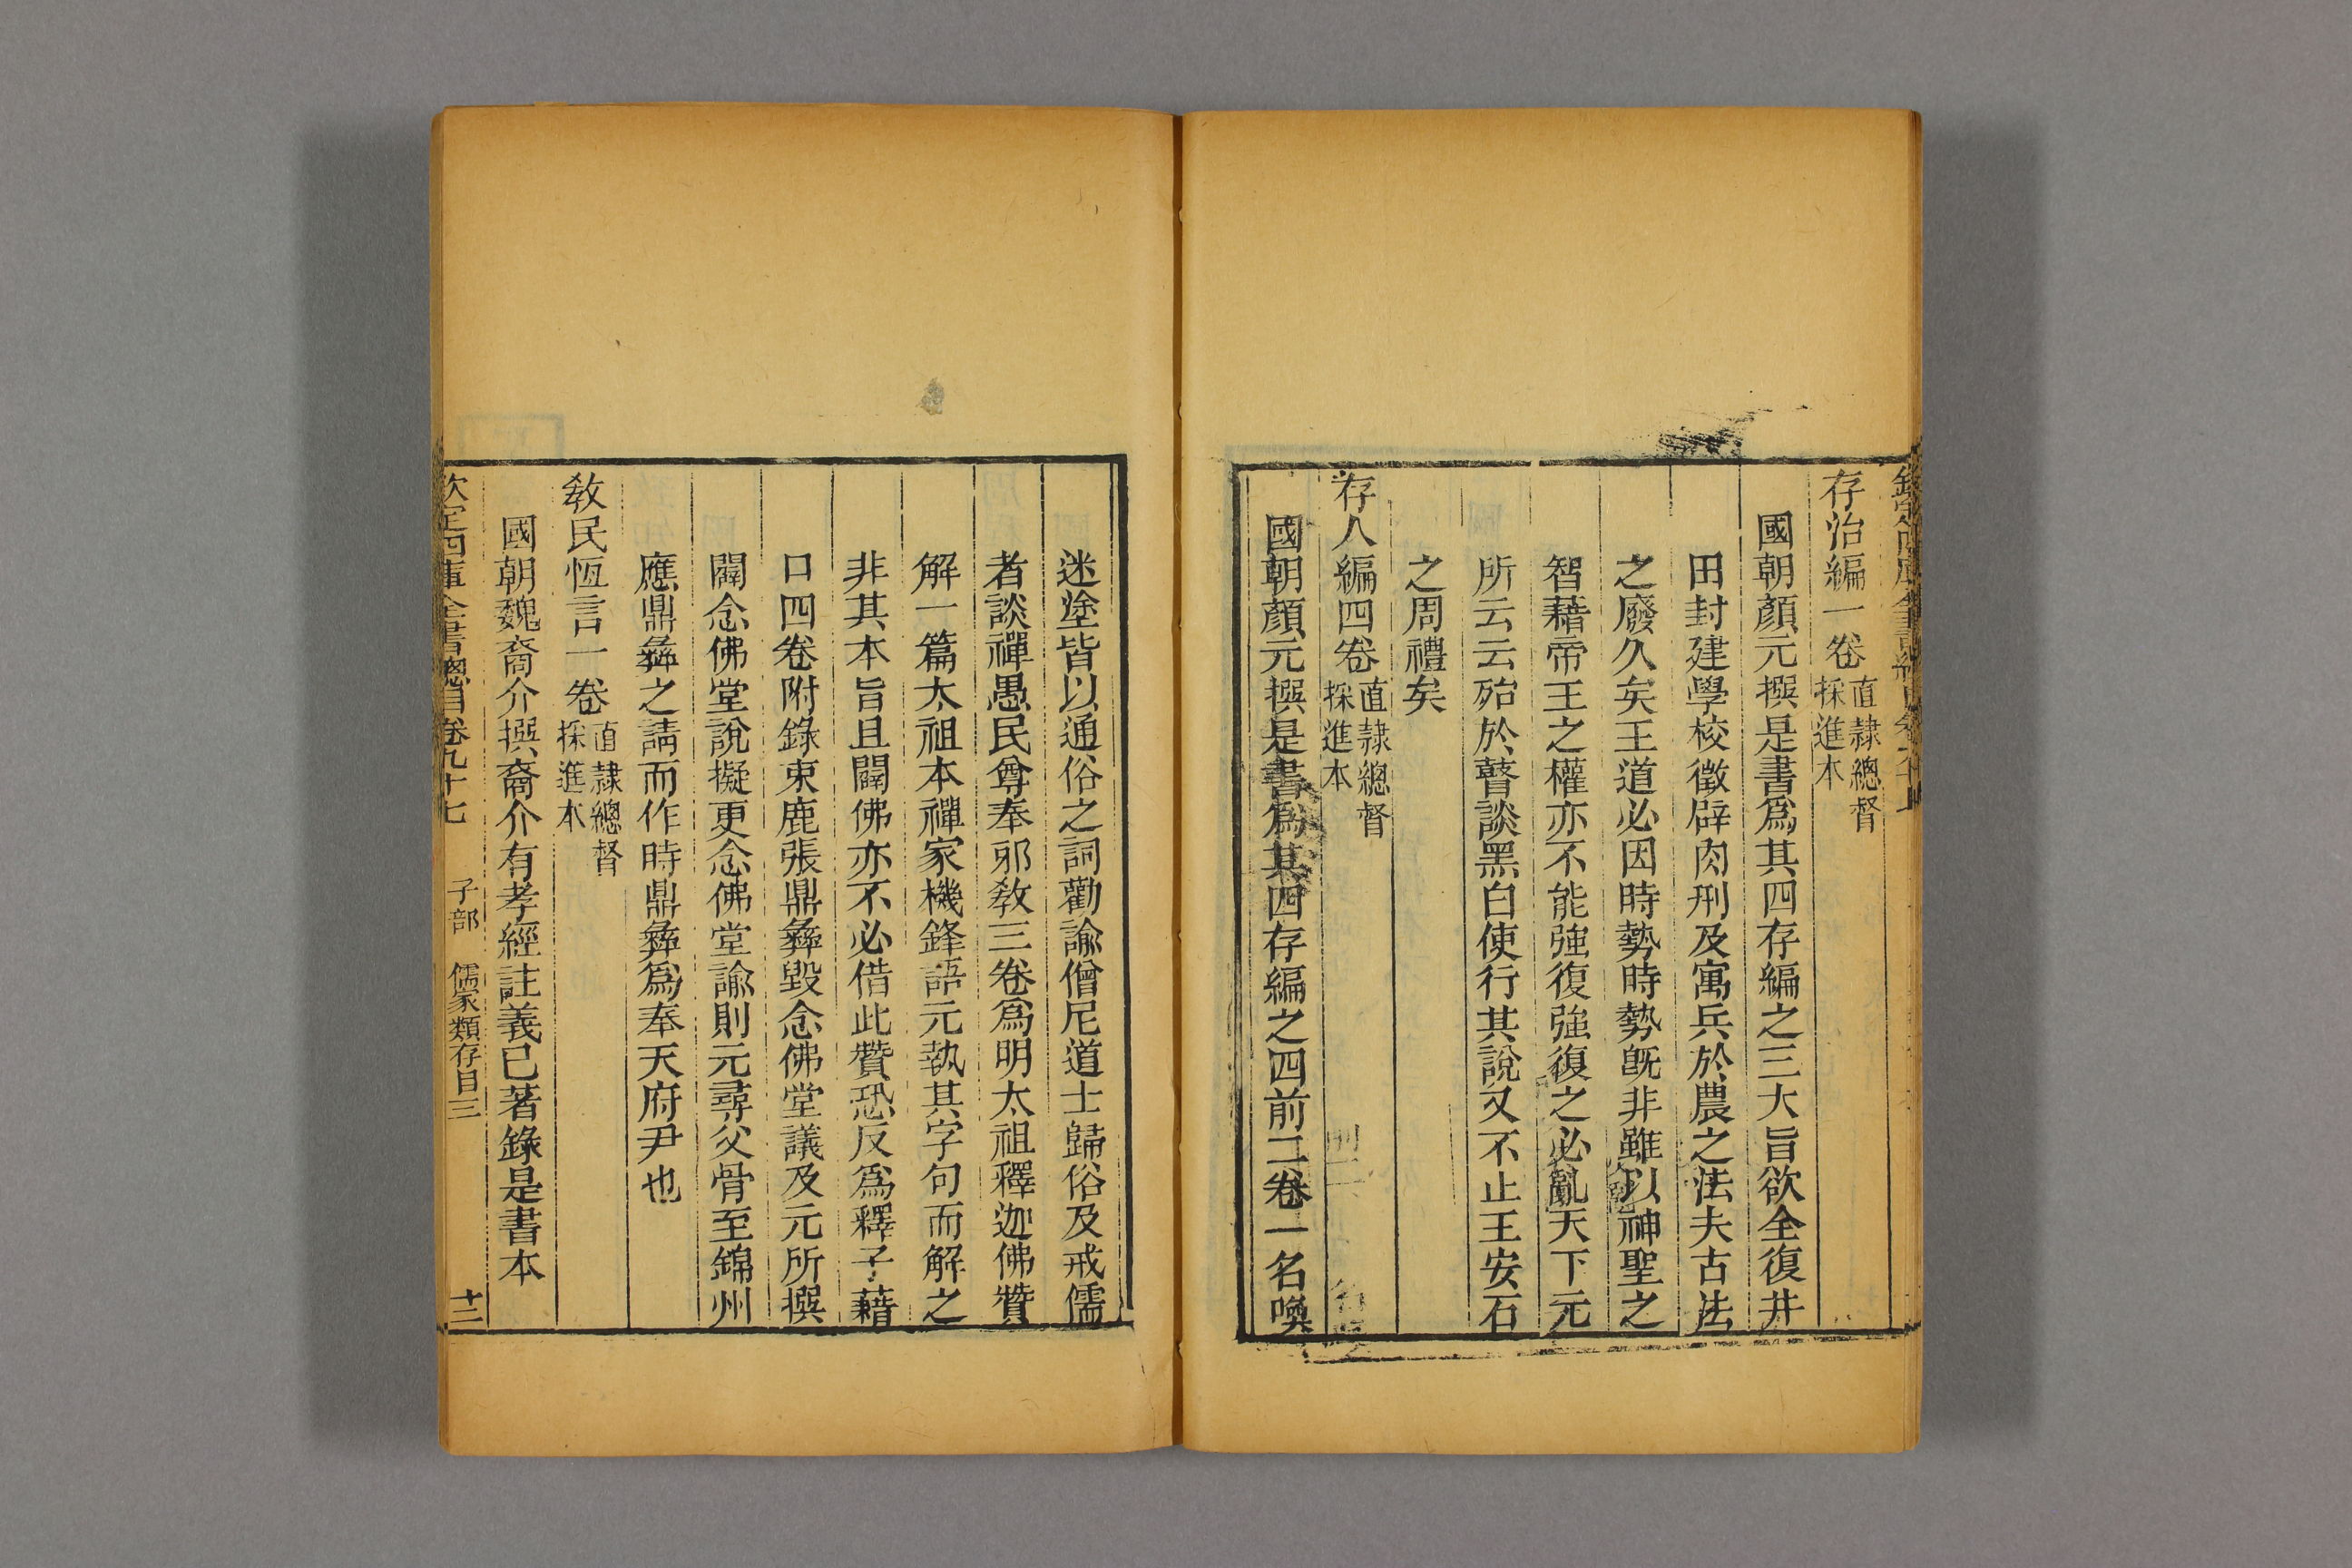 存治編一卷直隸總督採進本
國朝顏元撰是書爲其四存編之三大旨欲全復井
田封建學校徵辟肉刑及寓兵於農之法夫古法
之廢久矣王道必因時勢時勢旣非雖以神聖之
智藉帝王之權亦不能強復強復之必亂天下元
所云云殆於瞽談黑白使行其說又不止王安石
之周禮矣
存人編四卷直隸總督採進本
國朝顏元撰是書爲其四存編之四前二卷一名喚
迷塗皆以通俗之詞勸諭僧尼道士歸俗及戒儒
者談禪愚民尊奉邪敎三卷爲明太祖釋迦佛贊
解一篇太祖本禪家機鋒語元執其字句而解之
非其本旨且闢佛亦不必借此贊恐反爲釋子藉
口四卷附錄束鹿張鼎彝毀念佛堂議及元所撰
闢念佛堂說擬更念佛堂諭則元尋父骨至錦州
應鼎彝之請而作時鼎彝爲奉天府尹也
敎民恆言一卷直隸總督採進本
國朝魏裔介撰裔介有孝經註義已著錄是書本
欽定四庫全書總目卷九十七 子部 儒家類存目三 十三